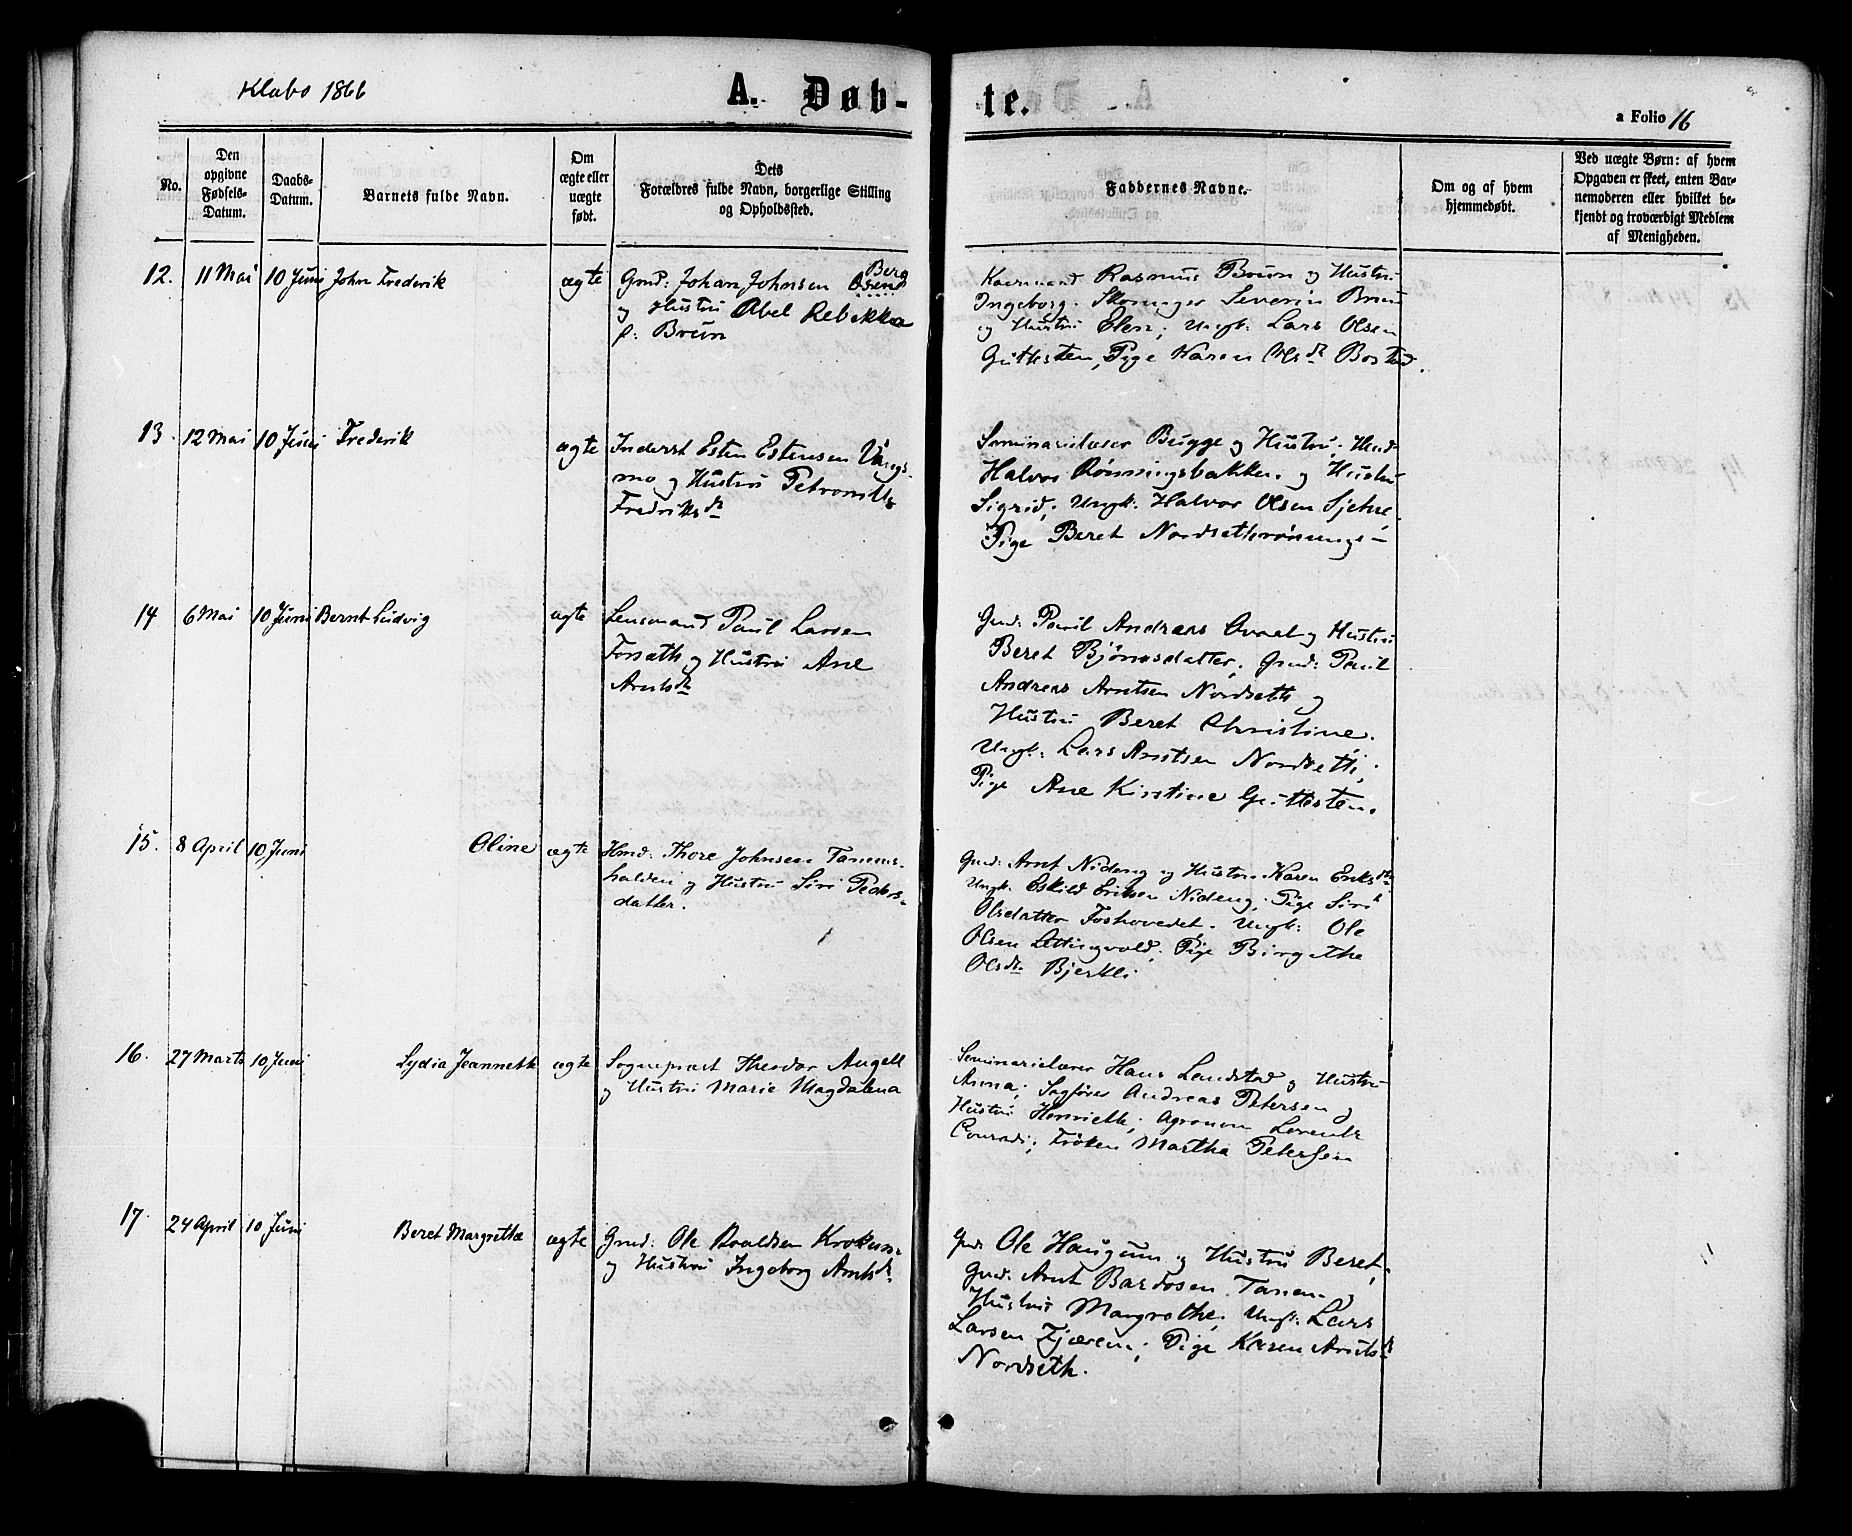 Klæbo 1866
A. Døb-
te.
a Folio 16
No.
Den
opgivne
Fødsels-
Datum.
Daabs-
Datum.
Barnets fulde Navn.
Om
ægte eller
uægte
født.
Dets
Forældres fulde Navn, borgerlige Stilling
og Opholdssted.
Faddernes Navne.
Om og af hvem
hjemmedøbt.
Ved uægte Børn: af hvem
Opgaven er skeet, enten Bar-
nemoderen eller hvilket be-
kjendt og troværdigt Medlem
af Menigheden.
12. 11 Mai 10 Juni John Frederik ægte
Gmd: Johan Johnsen Berg
og Hustru Abel Rebekka
f. Bruun
Rasmus Bruun og Hustru
Ingeborg. Severin Bruun
og Hustru Elen; Ungk: Lars Olsen
Guttesten, Pige Karen Olsdr Bostad.
13. 12 Mai 10 Juni Frederik ægte
Inderst Esten Estensen Vangs-
mo og Hustru Petronille
Fredriksdr
Seminarielærer Bugge og Hustru; Hmd
Halvor Rönningsbakken og Hustru
Sigrid; Ungk. Halvor Olsen
Pige Beret
14 6 Mai 10 Juni Bernt Ludvig ægte
Lensmand Paul Larsen
Forsæth og Hustru Ane
Arntsdr
Gmd: Paul Andreas og Hustru
Beret Bjørnsdatter, Gmd: Paul
Andreas Arntsen Nordseth og
Hustru Beret Christine.
Ungk: Lars Arntsen Nordseth;
Pige Ane Kirstine Guttesten.
15. 8 April 10 Juni Oline ægte
Hmd: Thore Johnsen Tanems-
halden og Hustru Siri Peders-
datter.
Gmd: Arnt Nideng og Hustru Karen Eriksdr
Ungk: Eskild Eriksen Nideng; Pige Siri
Olsdatter Foshovedet. Ungk: Ole
Olsen Pige Birgithe
Olsdr Bjerkli
16. 27 Marts 10 Juni Lydia Jeannette ægte
Sogneprest Theodor Angell
og Hustru Marie Magdalena
Seminarielærer Hans Landstad og Hustru
Anna; Sagfører Andreas Petersen og
Hustru Henriette; Agronom Lorentz
Conradi; Frøken Martha Petersen
17. 24 April 10 Juni Beret Margrethe ægte
Gmd: Ole
og Hustru Ingeborg Arntsdr
Gmd: Ole Haugum og Hustru Beret;
Gmd: Arnt Bardosen Tanem og
Hustru Margrethe, Ungk: Lars
Larsen Fjæren; Pige Karen Arntsdr
Nordseth.